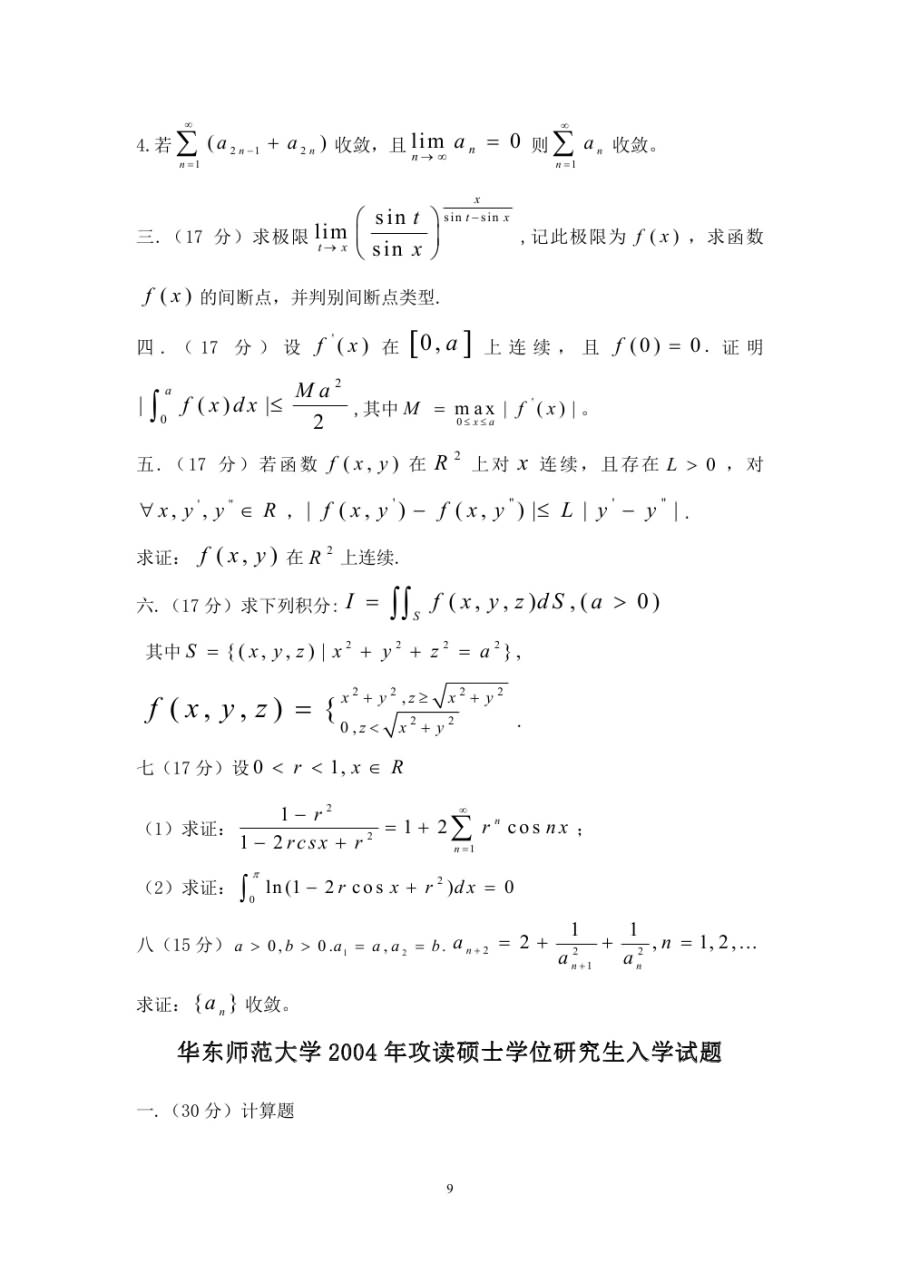 4.若 $\sum_{n=1}^{\infty}(a_{2n-1}+a_{2n})$ 收敛，且 $\lim_{n\to\infty}a_n=0$ 则 $\sum_{n=1}^{\infty}a_n$ 收敛。
三.（17 分）求极限 $\lim_{t\to x}\left(\frac{\sin t}{\sin x}\right)^{\frac{x}{\sin t-\sin x}}$ ,记此极限为 $f(x)$ ，求函数
$f(x)$ 的间断点，并判别间断点类型.
四.（17 分）设 $f^{'}(x)$ 在 $[0,a]$ 上连续，且 $f(0)=0$. 证明
$|\int_0^a f(x)dx|\leq\frac{Ma^2}{2}$ ,其中 $M=\max_{0\leq x\leq a}|f^{'}(x)|$ 。
五.（17 分）若函数 $f(x,y)$ 在 $R^2$ 上对 $x$ 连续，且存在 $L>0$ ，对
$\forall x,y^{'},y^{"}\in R$ ，$|f(x,y^{'})-f(x,y^{"})|\leq L|y^{'}-y^{"}|$ .
求证：$f(x,y)$ 在 $R^2$ 上连续.
六.（17 分）求下列积分: $I=\iint_S f(x,y,z)dS,(a>0)$
其中 $S=\{(x,y,z)|x^2+y^2+z^2=a^2\}$ ,
$f(x,y,z)=\{\begin{matrix}x^2+y^2,z\geq\sqrt{x^2+y^2}\\0,z<\sqrt{x^2+y^2}\end{matrix}$ .
七（17 分）设 $0<r<1,x\in R$
（1）求证：$\frac{1-r^2}{1-2rcsx+r^2}=1+2\sum_{n=1}^{\infty}r^n\cos nx$ ；
（2）求证：$\int_0^{\pi}\ln(1-2r\cos x+r^2)dx=0$
八（15 分）$a>0,b>0.a_1=a,a_2=b.$ $a_{n+2}=2+\frac{1}{a_{n+1}^2}+\frac{1}{a_n^2},n=1,2,\ldots$
求证：$\{a_n\}$ 收敛。
华东师范大学 2004 年攻读硕士学位研究生入学试题
一.（30 分）计算题
9